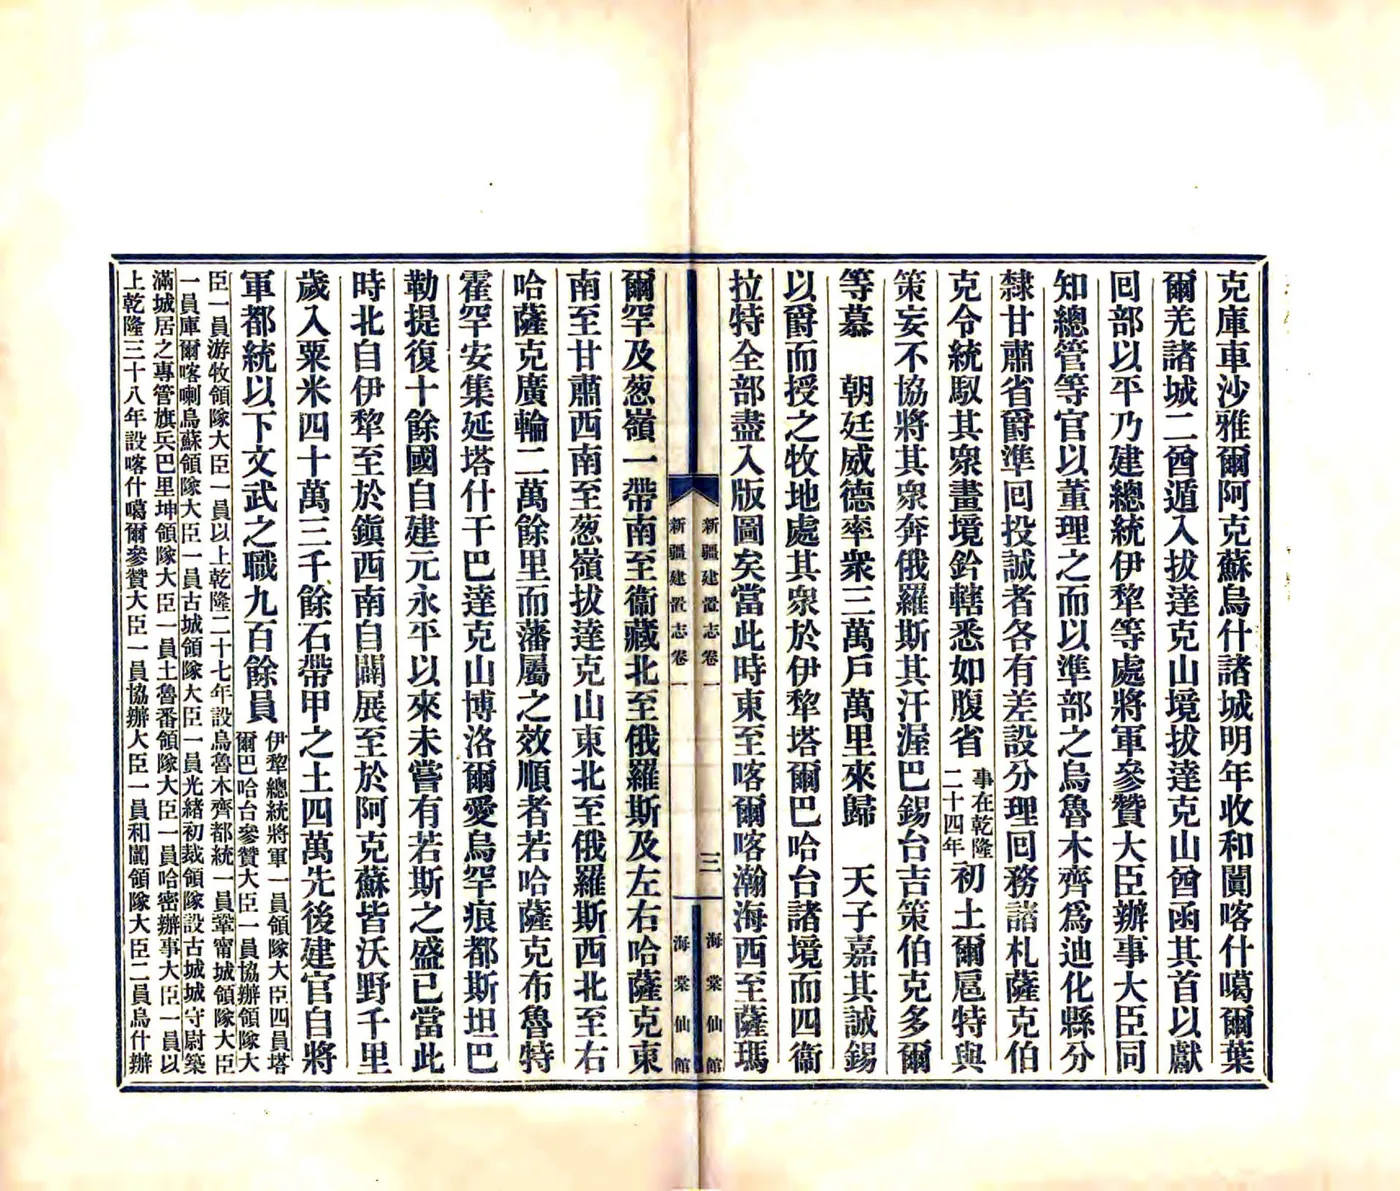 克庫車沙雅爾阿克蘇烏什諸城明年收和闐喀什噶爾葉
爾羌諸城二酋遁入拔達克山境拔達克山酋函其首以獻
回部以平乃建總統伊犂等處將軍參贊大臣辦事大臣同
知總管等官以董理之而以準部之烏魯木齊爲迪化縣分
隸甘肅省爵準回投誠者各有差設分理回務諸札薩克伯
克令統馭其衆畫境鈐轄悉如腹省
事在乾隆
二十四年
初土爾扈特與
策妄不協將其衆奔俄羅斯其汗渥巴錫台吉策伯克多爾
等慕　朝廷威德率衆三萬戶萬里來歸　天子嘉其誠錫
以爵而授之牧地處其衆於伊犂塔爾巴哈台諸境而四衞
拉特全部盡入版圖矣當此時東至喀爾喀瀚海西至薩瑪
新疆建置志卷一
三
海棠仙館
新疆建置志卷一
海棠仙館
爾罕及葱嶺一帶南至衞藏北至俄羅斯及左右哈薩克東
南至甘肅西南至葱嶺拔達克山東北至俄羅斯西北至右
哈薩克廣輪二萬餘里而藩屬之效順者若哈薩克布魯特
霍罕安集延塔什干巴達克山博洛爾愛烏罕痕都斯坦巴
勒提復十餘國自建元永平以來未嘗有若斯之盛已當此
時北自伊犂至於鎭西南自闢展至於阿克蘇皆沃野千里
歲入粟米四十萬三千餘石帶甲之士四萬先後建官自將
軍都統以下文武之職九百餘員
伊犂總統將軍一員領隊大臣四員塔
爾巴哈台參贊大臣一員協辦領隊大
臣一員游牧領隊大臣一員以上乾隆二十七年設烏魯木齊都統一員鞏甯城領隊大臣
一員庫爾喀喇烏蘇領隊大臣一員古城領隊大臣一員光緒初裁領隊設古城城守尉築
滿城居之專管旗兵巴里坤領隊大臣一員土魯番領隊大臣一員哈密辦事大臣一員以
上乾隆三十八年設喀什噶爾參贊大臣一員協辦大臣一員和闐領隊大臣二員烏什辦